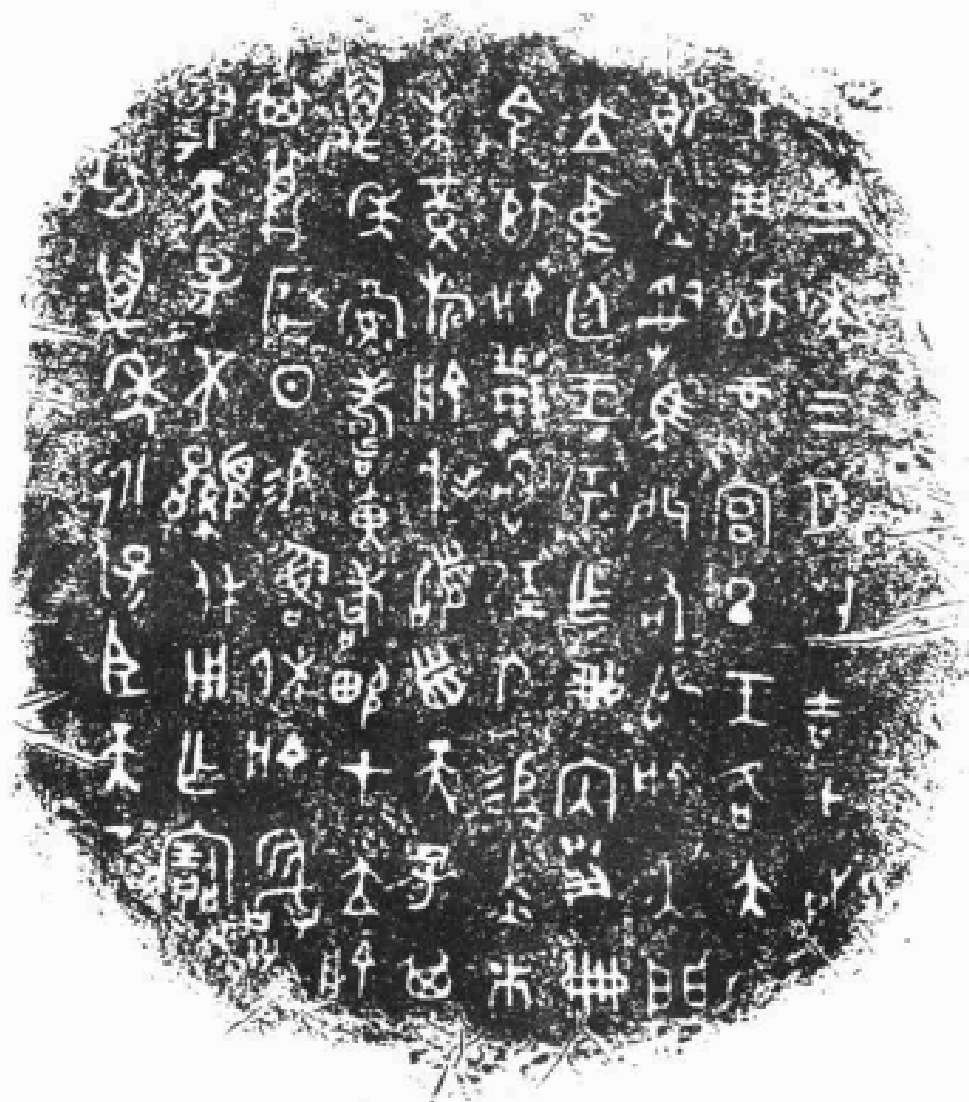 隹三年三月初吉甲戌王
才周師彔宮旦王各大室
即立𤔲馬共右師俞入門
立中廷王乎乍冊內史冊
令師俞𤔲𠈃人易赤巿
朱黃旂俞拜𩒨首天子其
萬年眉壽黃耇畯才立俞
其蔑曆日易魯休俞敢對
揚天子不顯休用乍寶𣪘
其萬年永保臣天子